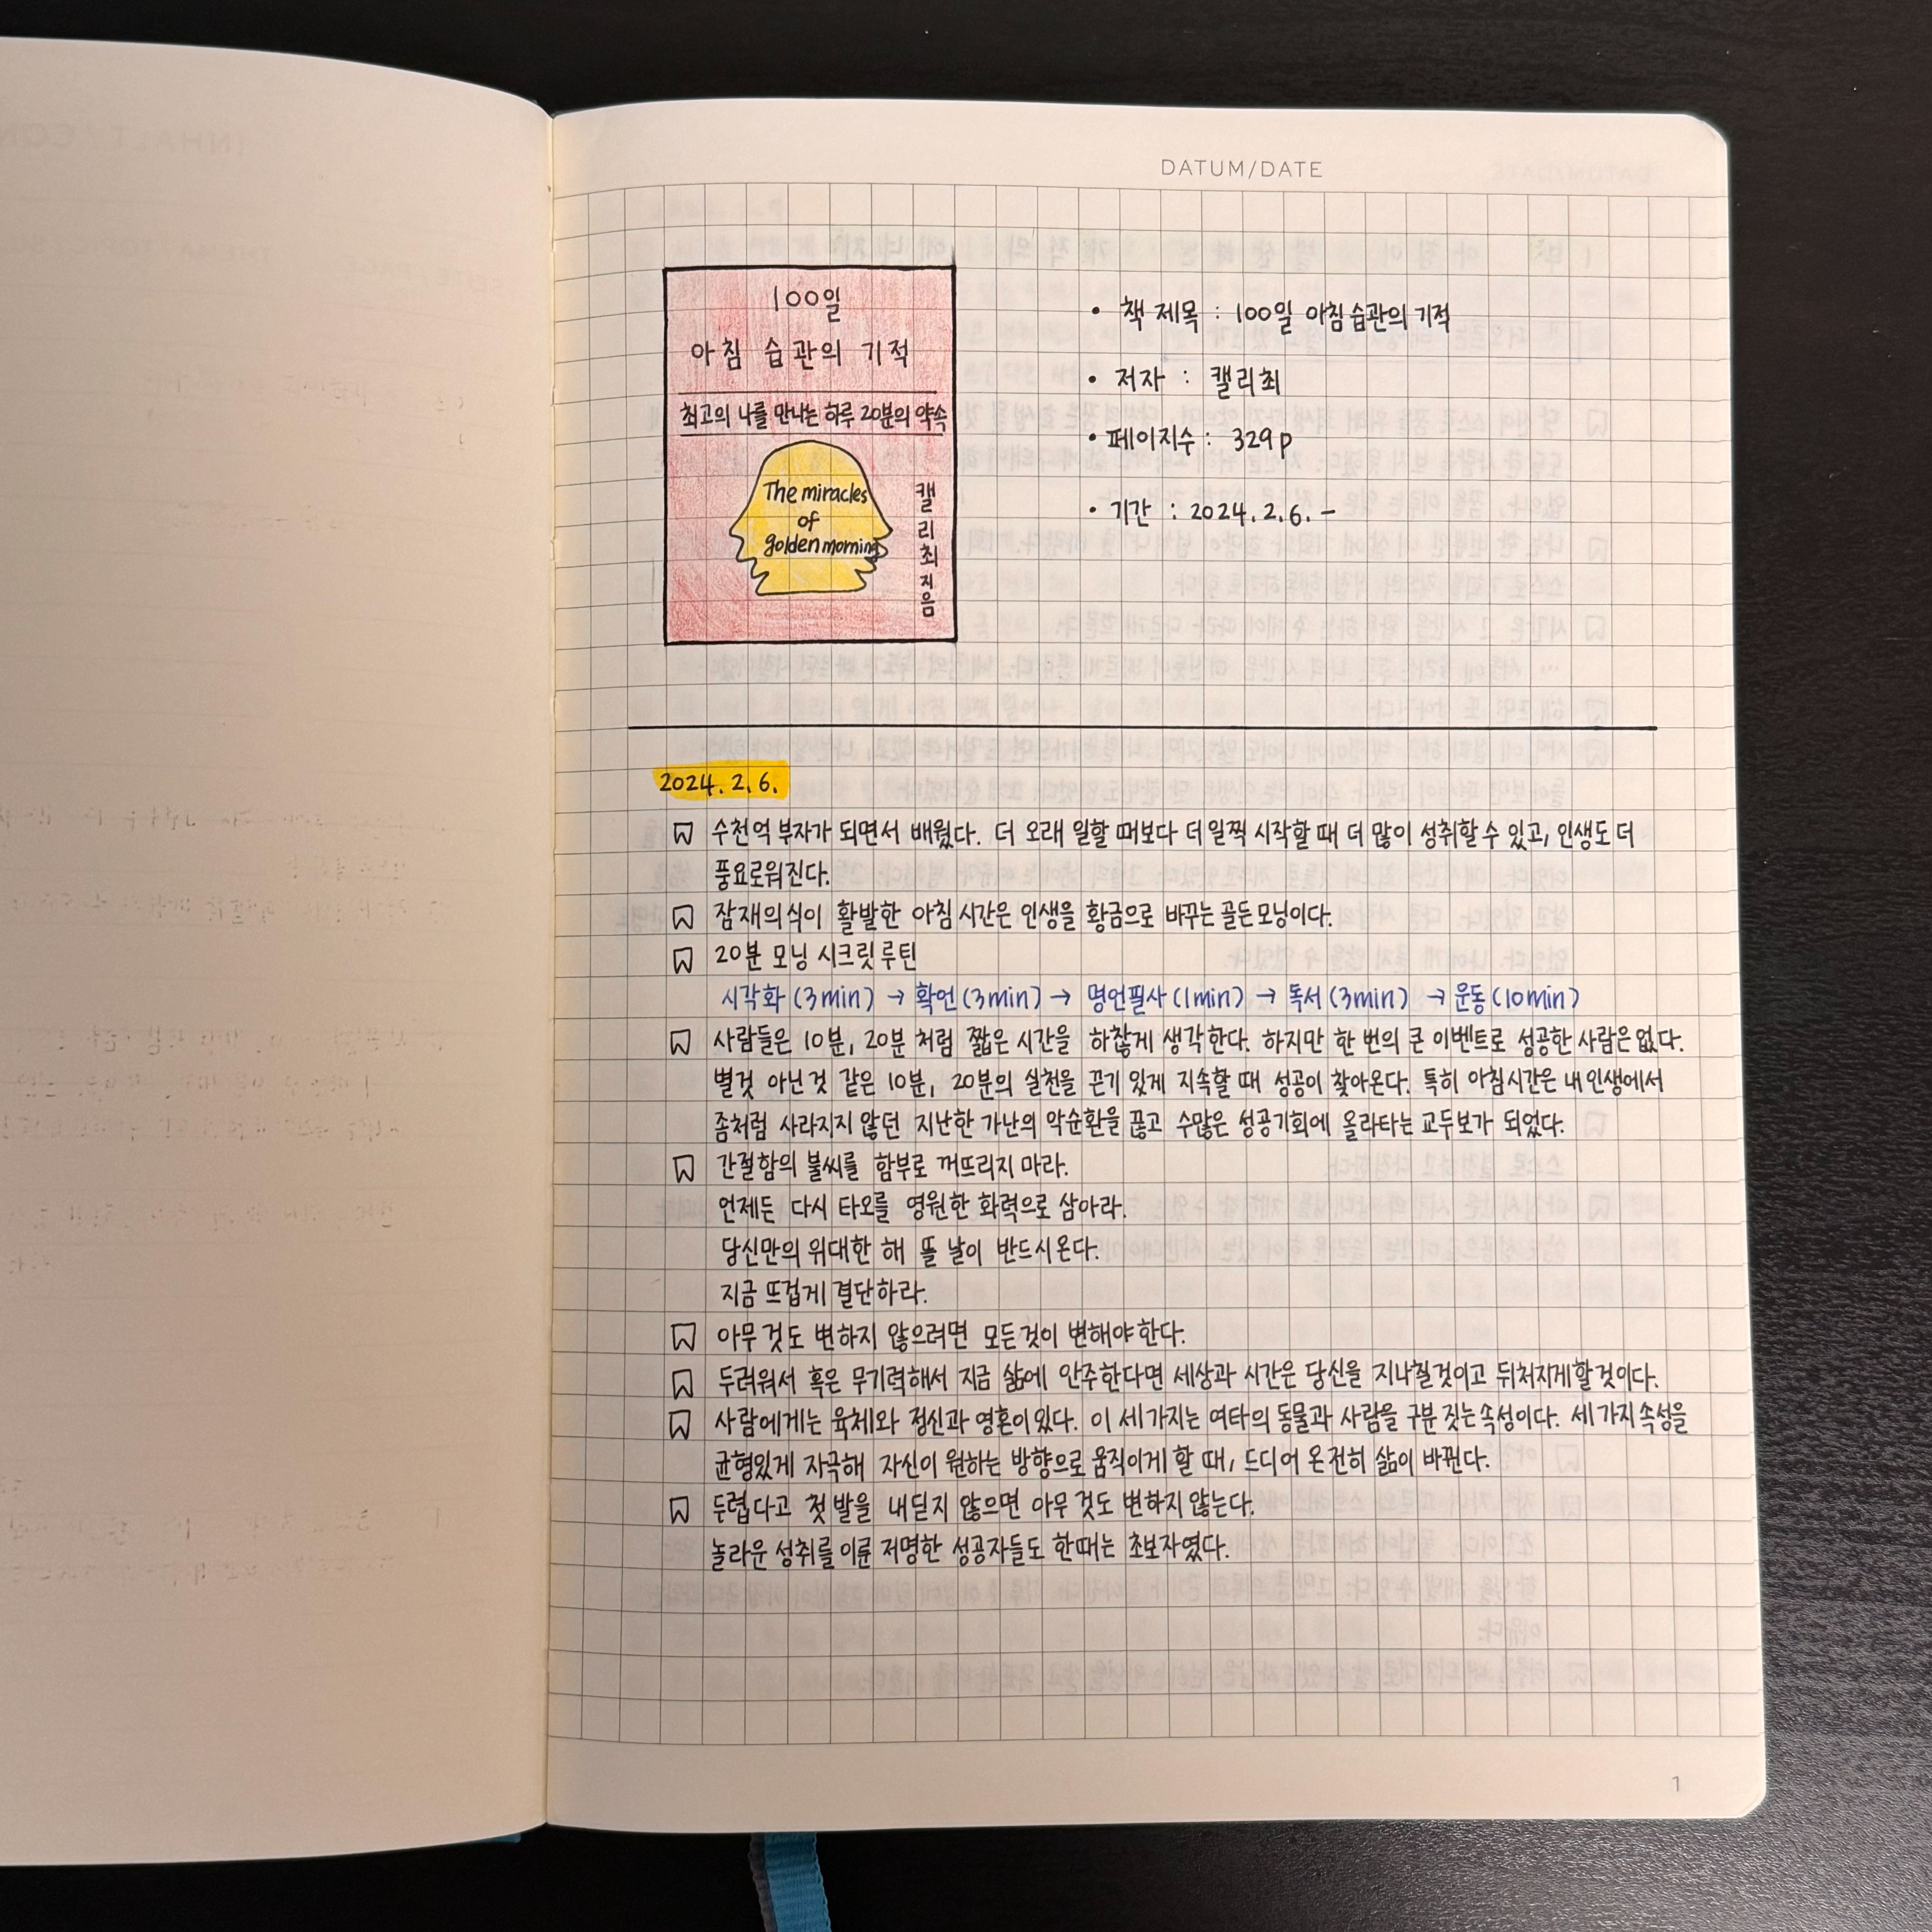 DATUM/DATE
100일
아침 습관의 기적
최고의 나를 만나는 하루 20분의 약속
The miracles
of
golden morning
캘리최지음
• 책 제목 : 100일 아침 습관의 기적
• 저자 : 캘리최
• 페이지수 : 329p
• 기간 : 2024.2.6. -
2024.2.6.
수천억 부자가 되면서 배웠다. 더 오래 일할 때보다 더 일찍 시작할 때 더 많이 성취할 수 있고, 인생도 더
풍요로워진다.
잠재의식이 활발한 아침 시간은 인생을 황금으로 바꾸는 골든모닝이다.
20분 모닝 시크릿 루틴
시각화(3min) → 확언(3min) → 명언필사(1min) → 독서(3min) → 운동(10min)
사람들은 10분, 20분 처럼 짧은 시간을 하찮게 생각한다. 하지만 한 번의 큰 이벤트로 성공한 사람은 없다.
별것 아닌것 같은 10분, 20분의 실천을 끈기 있게 지속할 때 성공이 찾아온다. 특히 아침시간은 내 인생에서
좀처럼 사라지지 않던 지난한 가난의 악순환을 끊고 수많은 성공기회에 올라타는 교두보가 되었다.
간절함의 불씨를 함부로 꺼뜨리지 마라.
언제든 다시 타오를 영원한 화력으로 삼아라.
당신만의 위대한 해 뜰 날이 반드시 온다.
지금 뜨겁게 결단하라.
아무것도 변하지 않으려면 모든것이 변해야 한다.
두려워서 혹은 무기력해서 지금 삶에 안주한다면 세상과 시간은 당신을 지나칠것이고 뒤처지게할것이다.
사람에게는 육체와 정신과 영혼이 있다. 이 세가지는 여타의 동물과 사람을 구분 짓는 속성이다. 세가지 속성을
균형있게 자극해 자신이 원하는 방향으로 움직이게 할 때, 드디어 온전히 삶이 바뀐다.
두렵다고 첫 발을 내딛지 않으면 아무 것도 변하지 않는다.
놀라운 성취를 이룬 저명한 성공자들도 한때는 초보자였다.
1